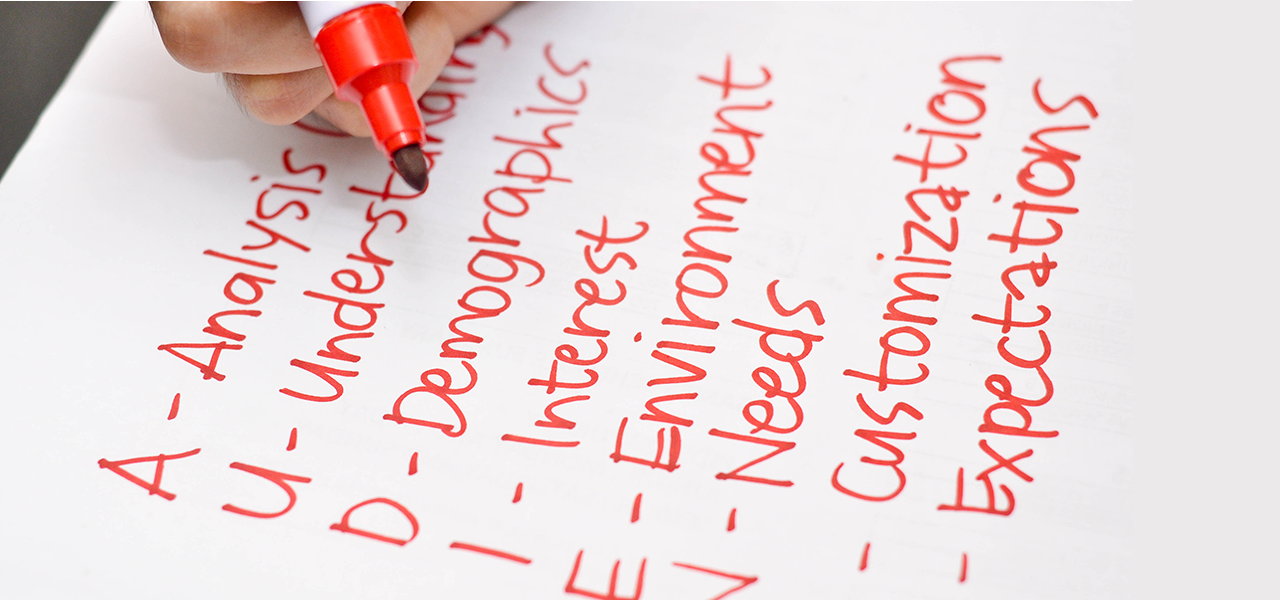 A - Analysis
U - Understanding
D - Demographics
I - Interest
E - Environment
N - Needs
- Customization
- Expectations